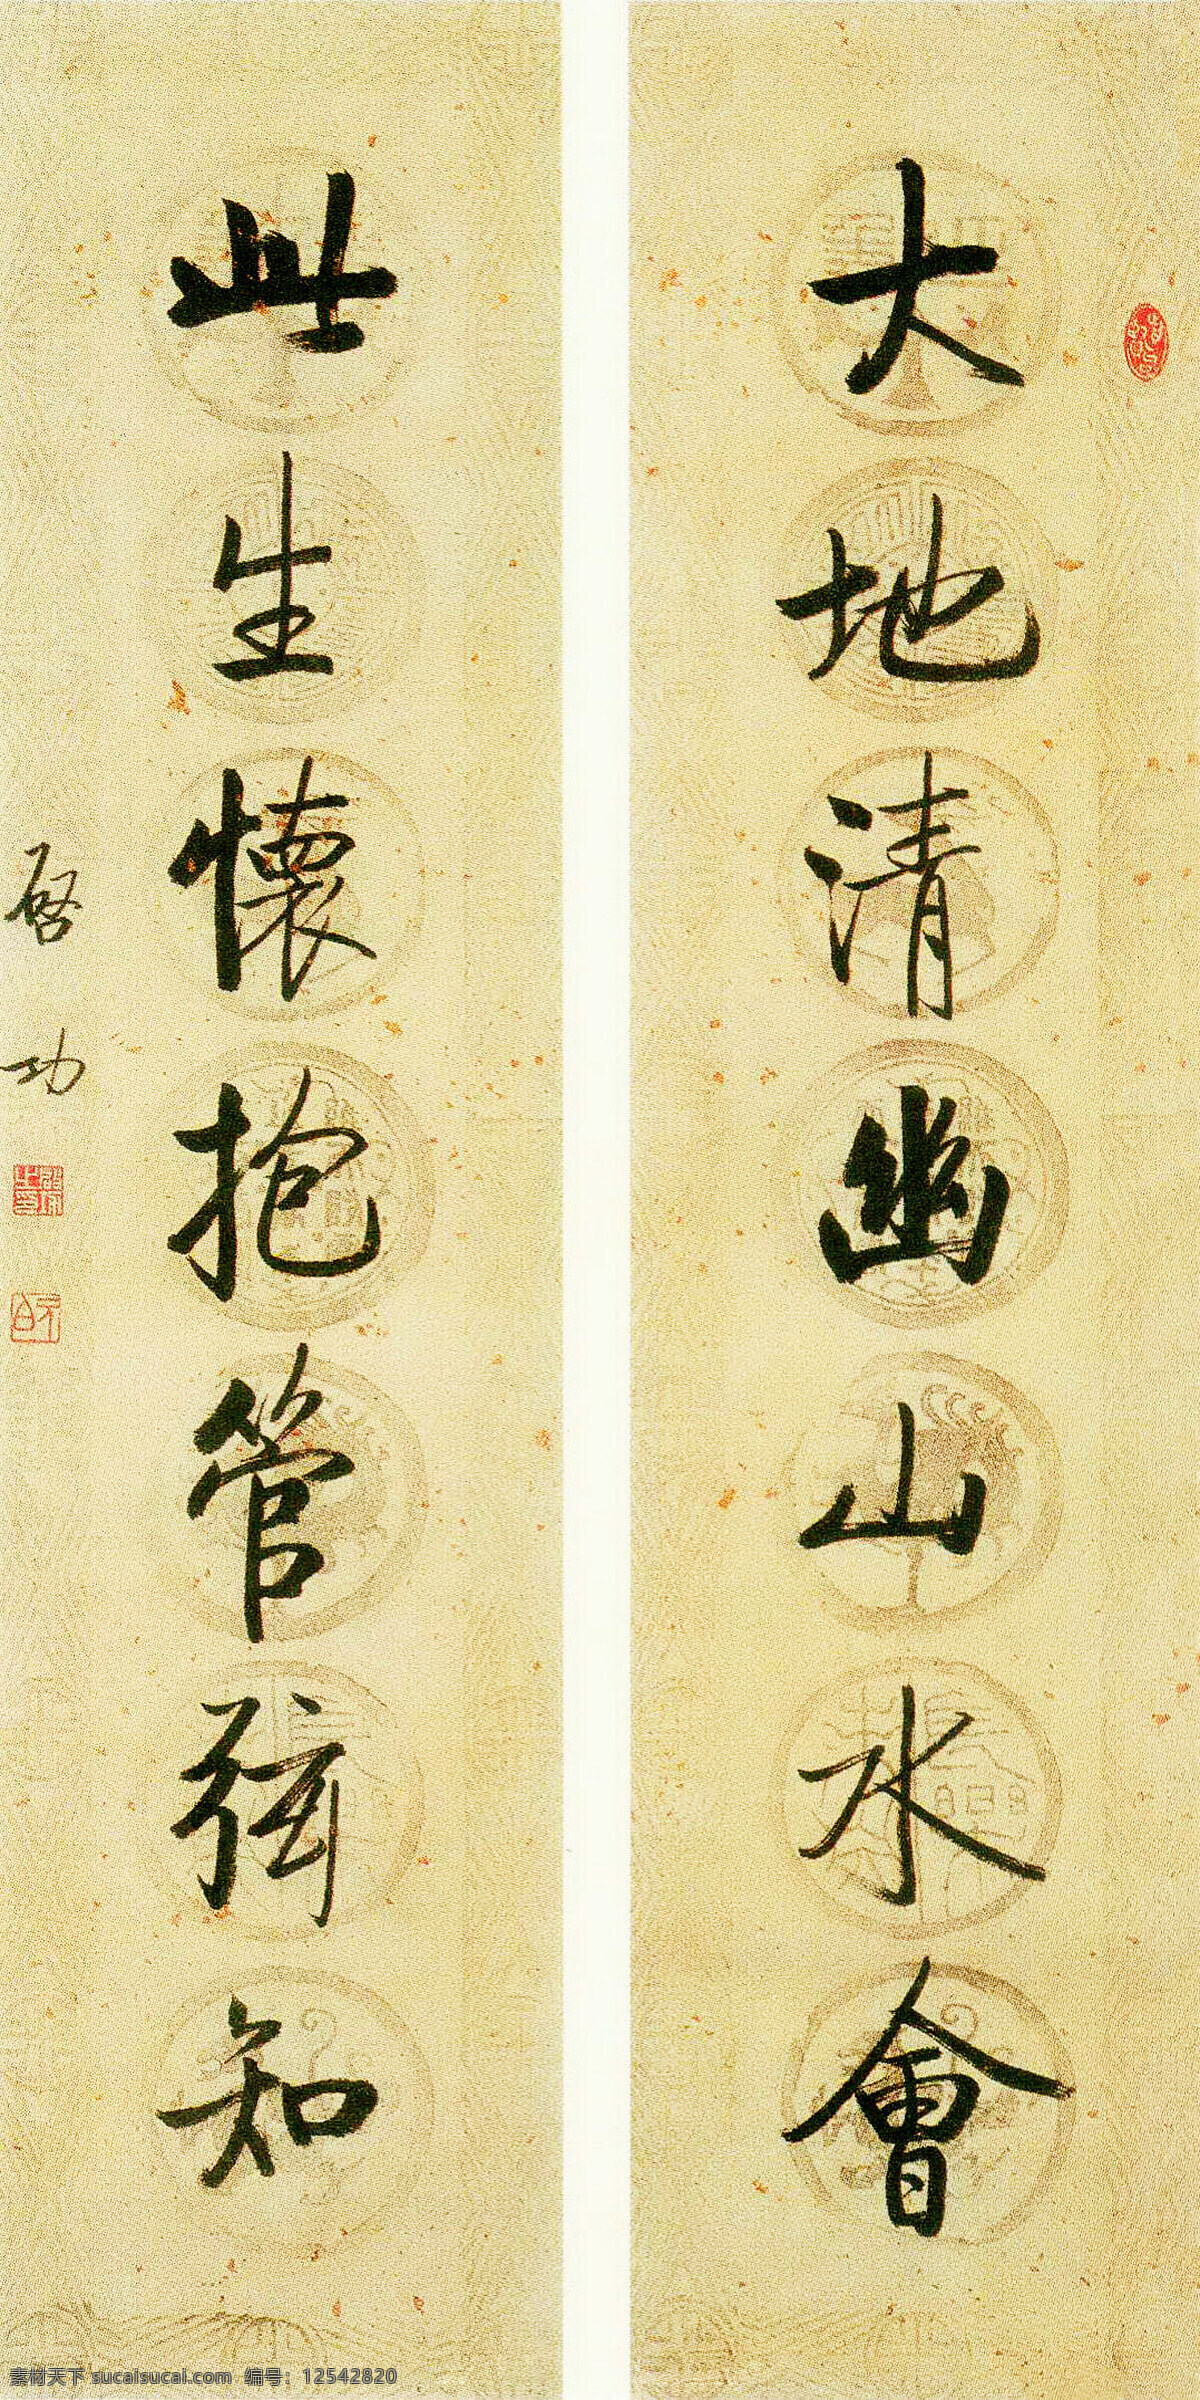 大地清幽山水會
此生懷抱管弦知
啓功
素材天下 sucaisucai.com 编号：12542820